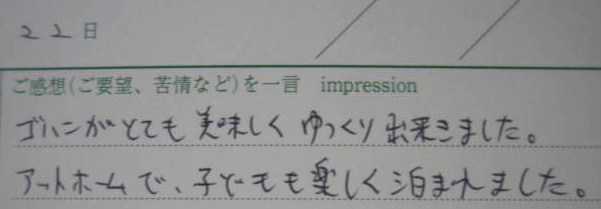 22日
ご感想(ご要望、苦情など)を一言 impression
ゴハンがとても美味しくゆっくり出来きました。
アットホームで、子どもも楽しく泊まれました。